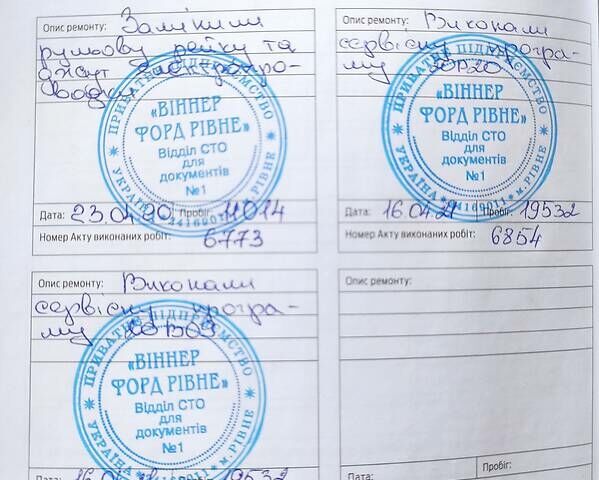 Опис ремонту: Замінили
рульову рейку та
джгут електропро-
водки
ПРИВАТНЕ ПІДПРИЄМСТВО
«ВІННЕР
ФОРД РІВНЕ»
Відділ СТО
для
документів
№1
УКРАЇНА * м.РІВНЕ
Дата: 23.04.20 Пробіг: 11014
Номер Акту виконаних робіт: 6773
Опис ремонту: Виконали
сервісну програ-
му
ПРИВАТНЕ ПІДПРИЄМСТВО
«ВІННЕР
ФОРД РІВНЕ»
Відділ СТО
для
документів
№1
УКРАЇНА * м.РІВНЕ
Дата: 16.04.21 Пробіг: 19532
Номер Акту виконаних робіт: 6854
Опис ремонту: Виконали
сервісну програ-
му
ПРИВАТНЕ ПІДПРИЄМСТВО
«ВІННЕР
ФОРД РІВНЕ»
Відділ СТО
для
документів
№1
УКРАЇНА м.РІВНЕ
19532
Опис ремонту:
Дата: Пробіг: